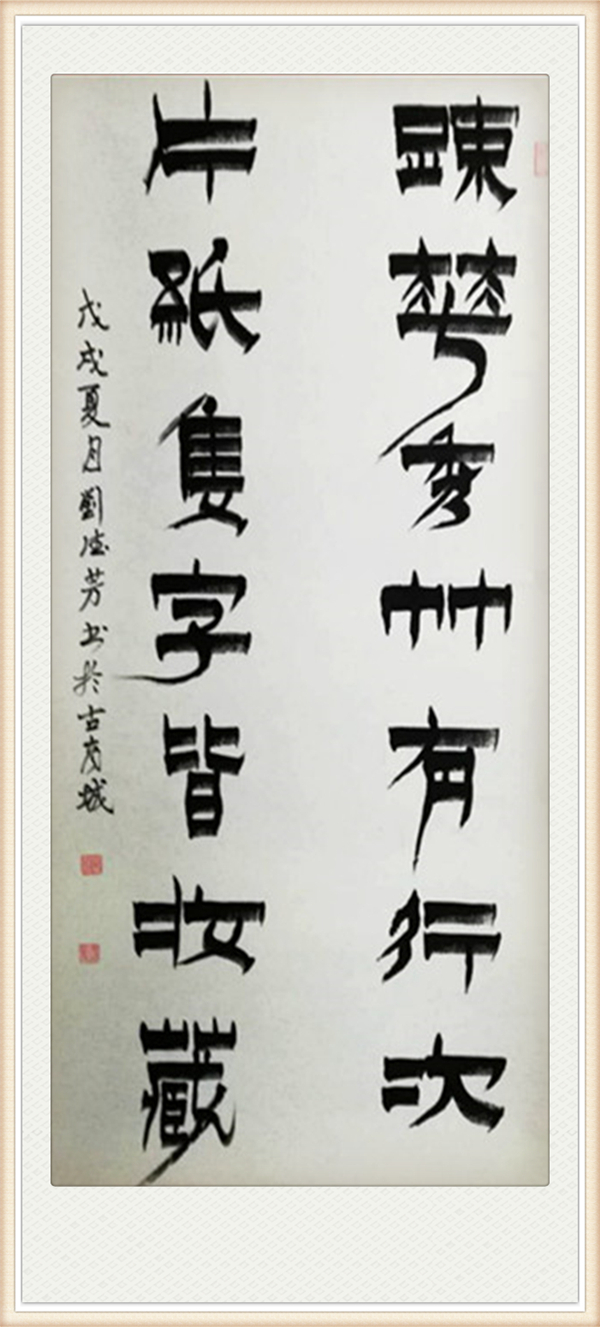 踈華秀竹有行次
片紙隻字皆收藏
戊戌夏月劉芳书於古城